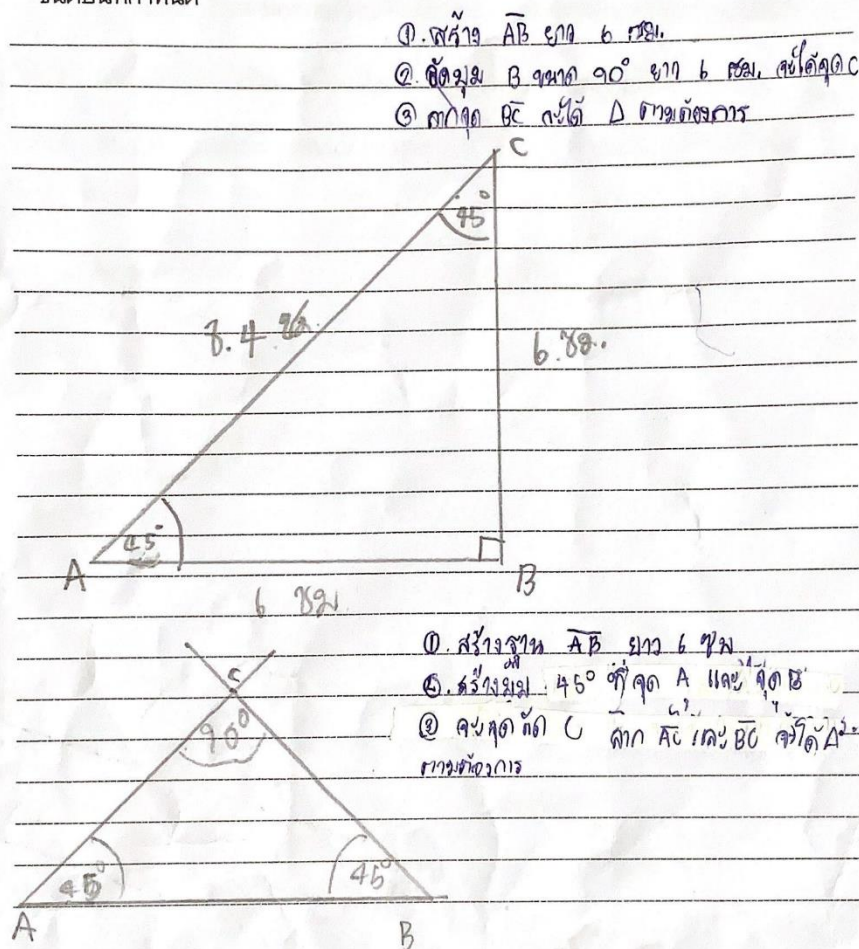 ① สร้าง AB ยาว 6 ซม.
② วัดมุม B ขนาด 90° ยาว 6 ซม. จะได้จุด C
③ ลากจุด BC จะได้ Δ ตามต้องการ
C
45°
8.4 ซม.
6 ซม.
45°
A
B
6 ซม
① สร้างฐาน AB ยาว 6 ซม
② สร้างมุม 45° ที่จุด A และจุด B
C
③ จะจุดตัด C ลาก AC และ BC จะได้ Δ
90°
ตามต้องการ
45°
45°
A
B